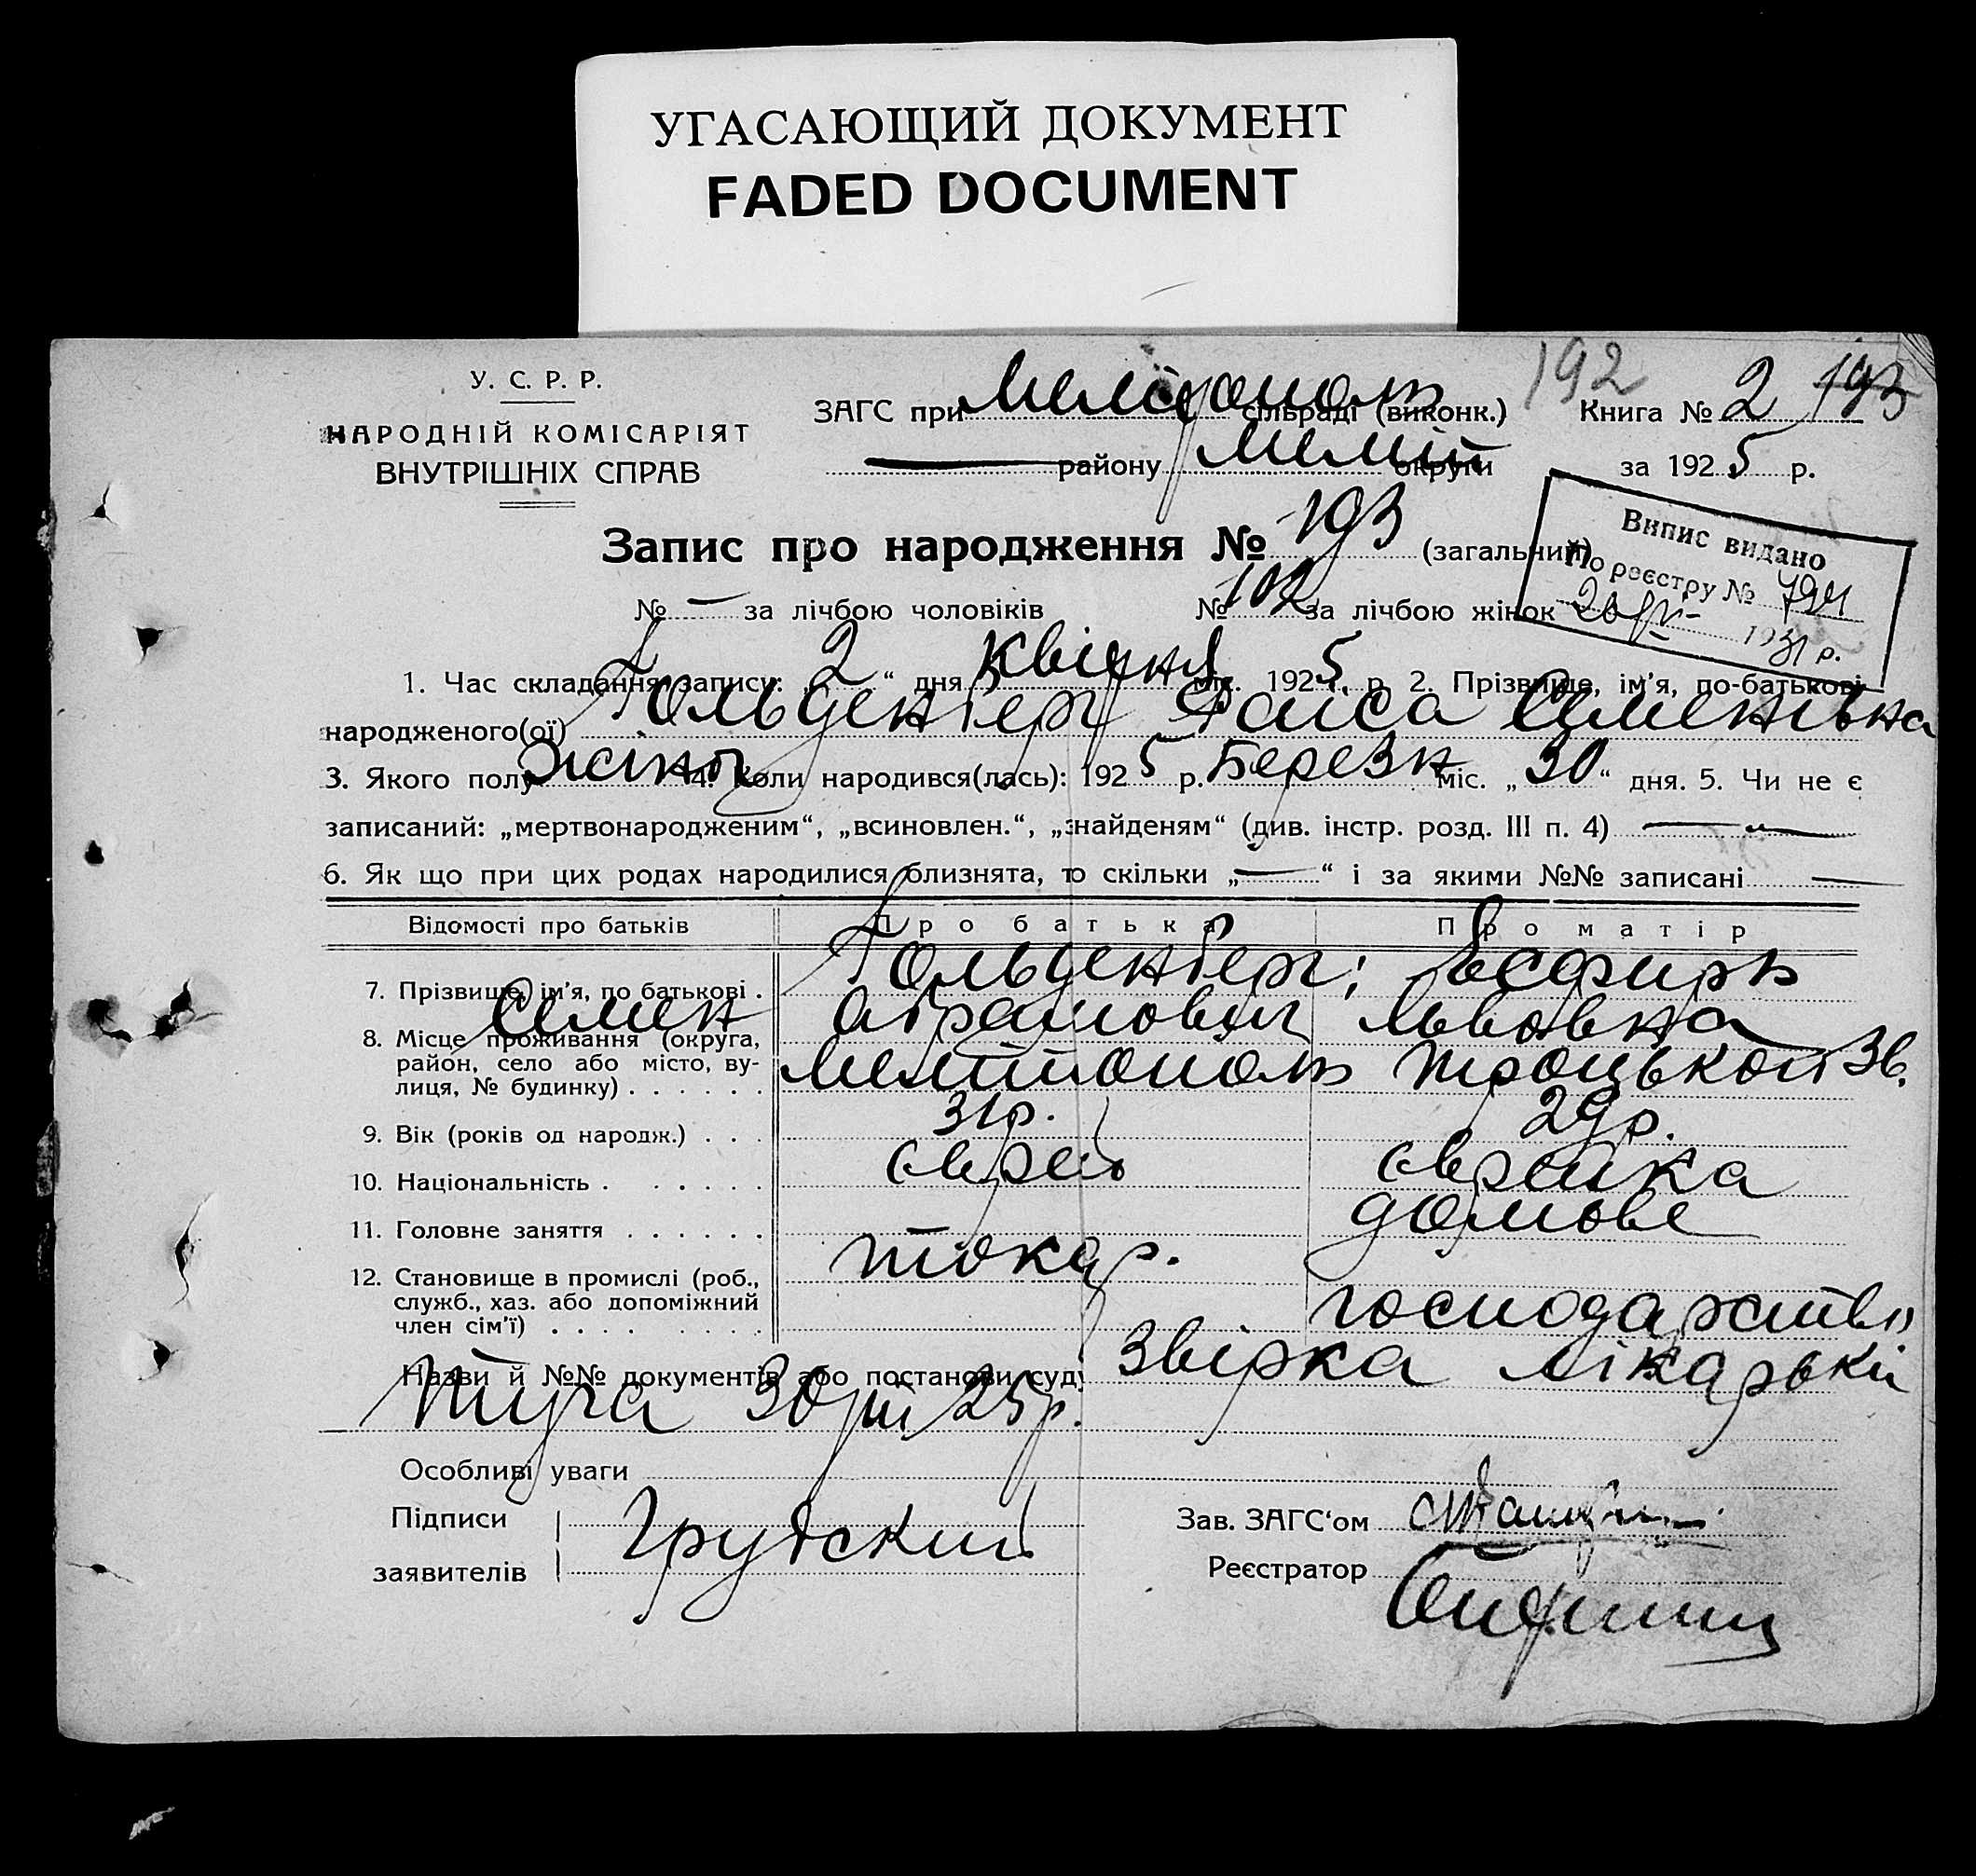 УГАСАЮЩИЙ ДОКУМЕНТ
FADED DOCUMENT
У. С. Р. Р.
НАРОДНІЙ КОМІСАРІЯТ
ВНУТРІШНІХ СПРАВ
ЗАГС при Мелітополь сільраді (виконк.)
192
Книга № 2 193
району Меліт округи
за 1925 р.
Запис про народження № 193 (загальний)
Випис видано
По реєстру № 794
1931 р.
№ — за лічбою чоловіків № 102 за лічбою жінок
1. Час складання запису: „2“ дня Квітня міс. 1925 р. 2. Прізвище, ім'я, по-батькові
народженого(ої) Гольденберг Раиса Семенівна
3. Якого полу жіноч 4. Коли народився(лась): 1925 р. Березн міс. „30“ дня. 5. Чи не є
записаний: „мертвонародженим“, „всиновлен.“, „знайденям“ (див. інстр. розд. III п. 4) —
6. Як що при цих родах народилися близнята, то скільки „—“ і за якими №№ записані —
Відомості про батьків Про батька Про матір
7. Прізвище, ім'я, по батькові . Гольденберг; Есфирь
Семен Абрамович Львовна
8. Місце проживання (округа,
район, село або місто, ву-
лиця, № будинку) . . . . . . Мелітополь Троцької 36.
9. Вік (років од народж.) . . . 31р. 29р.
10. Національність . . . . . . . єврей єврейка
11. Головне заняття . . . . . . токар. домове
12. Становище в промислі (роб.,
служб., хаз. або допоміжний
член сім'ї) . . . . . . . . господарство
Назви й №№ документів або постанови суду Звірка лікарькі
30/III 25р.
Особливі уваги
Підписи
заявителів
Грудский
Зав. ЗАГС‘ом
Реєстратор